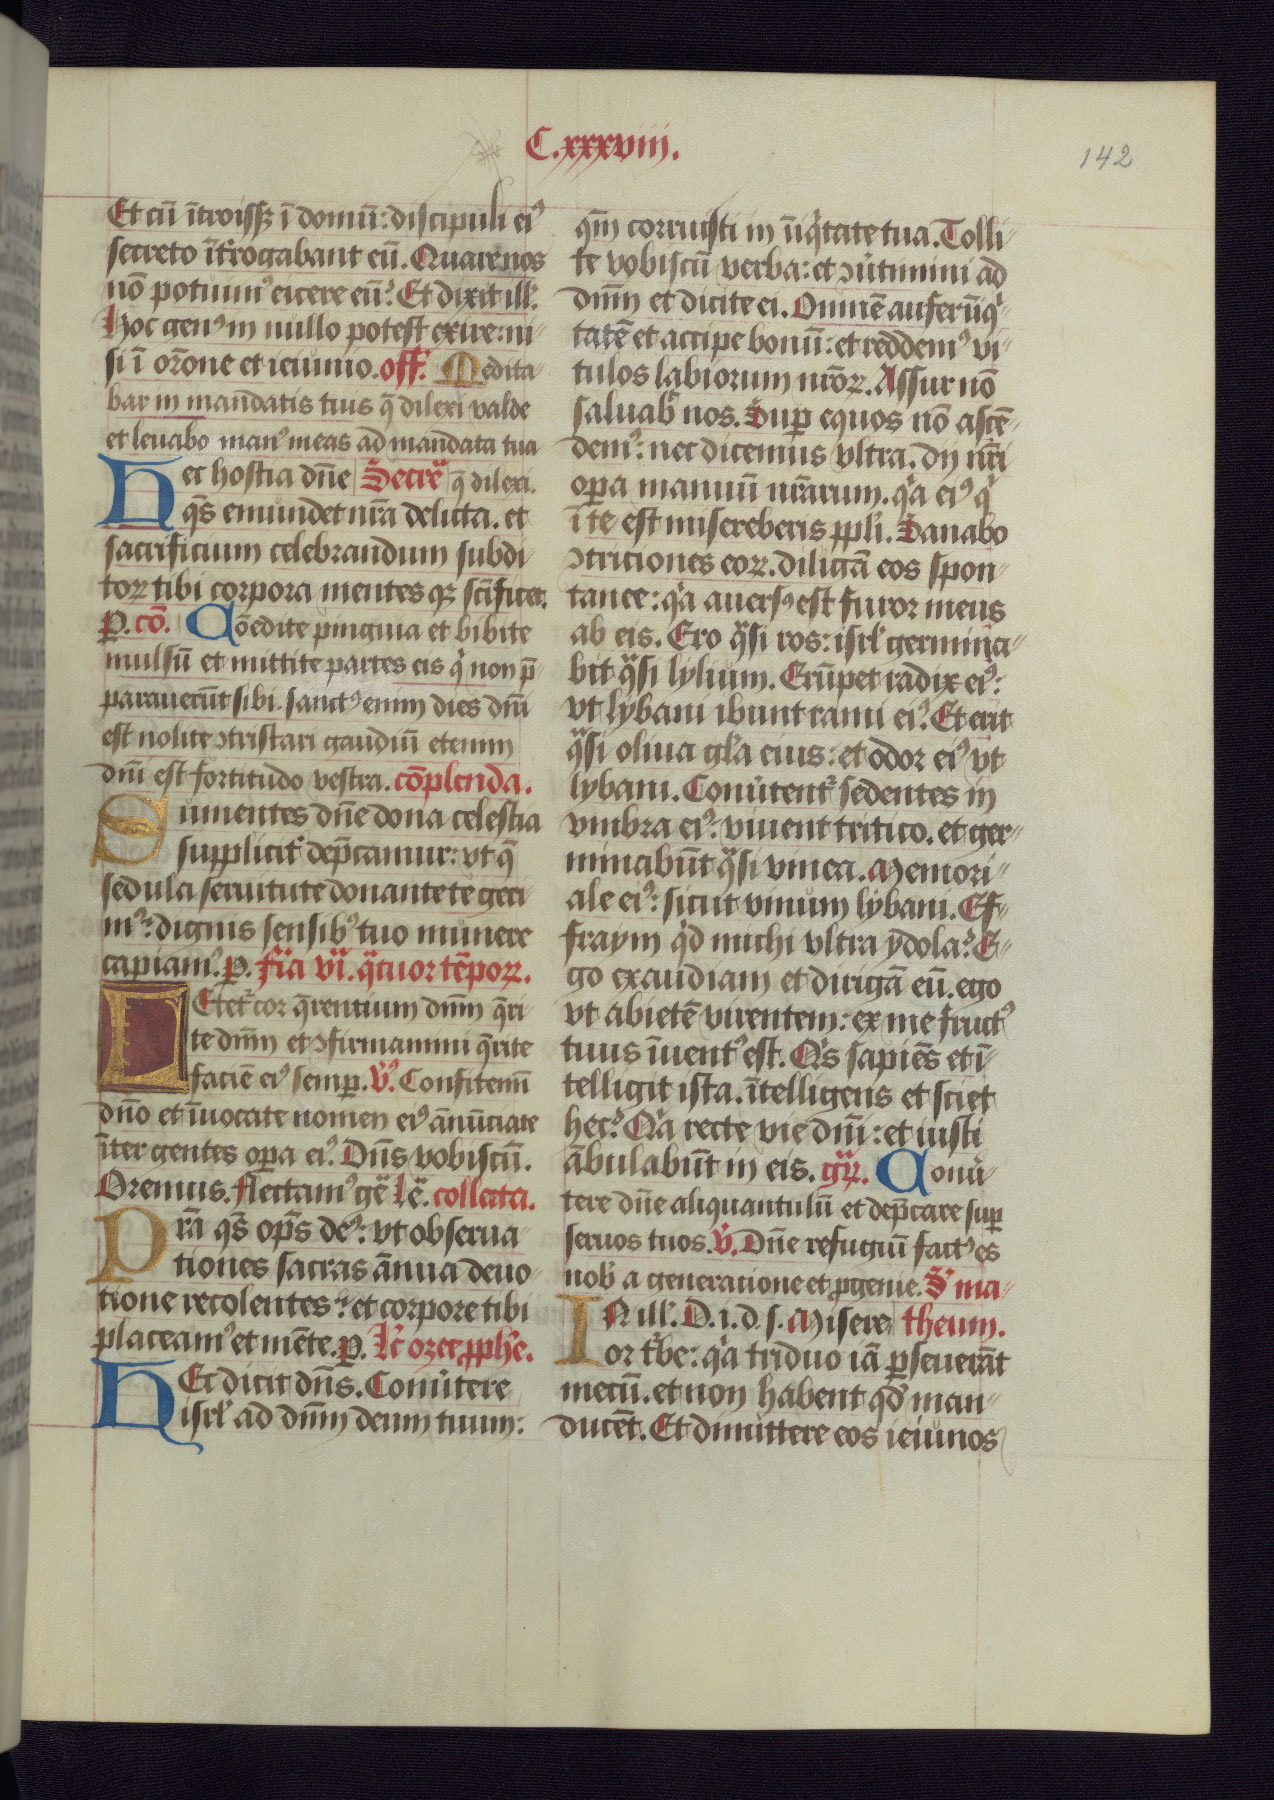 C.xxxviii.
142
Et cū ītroissꝫ ī domū: discipuli eiꝰ
secreto īt̄rogabant eū. Quare nos
nō potuimꝰ eicere eū? Et dixit ill̄.
Hoc genꝰ in nullo potest exire: ni-
si ī orōne et ieiunio. off̄. Medita-
bar in mandatis tuis q̄ dilexi valde
et leuabo manꝰ meas ad mandata tua
Hec hostia dn̄e Secrē q̄ dilexi.
qs̄ emundet nr̄a delicta. et
sacrificium celebrandum subdi-
toꝝ tibi corpora mentesqꝫ scīficet.
P. cō. Cōedite pinguia et bibite
mulsū et mittite partes eis qͥ non p̄-
parauerūt sibi. sanctꝰ enim dies dn̄i
est nolite ꝯtristari gaudiū etenim
dn̄i est fortitudo vestra. cōplenda.
Sumentes dn̄e dona celestia
supplicit̄ dep̄camur: vt q̄
sedula seruitute donante te geri-
mꝰ: dignis sensibꝰ tuo munere
capiamꝰ. ꝑ. fīa vi. qͣtuor tēpoꝝ.
LEtet̄ cor q̄rentium dn̄m q̄ri-
te dn̄m et ꝯfirmamini q̄rite
faciē eiꝰ semꝑ. v̄ꝰ. Confitemī
dn̄o et īuocate nomen eiꝰ ānūciate
īter gentes oꝑa eiꝰ. Dn̄s vobiscū.
Oremus. flectamꝰ gē Lē. collecta.
Prā qs̄ op̄s deꝰ: vt obserua-
tiones sacras ānua deuo-
tione recolentes: et corpore tibi
placeamꝰ et mēte. ꝑ. Lc̄ ozee ꝓph̄e.
HEc dicit dn̄s. Conūtere
isrl̄ ad dn̄m deum tuum:
qm̄ corruisti in īiqͥtate tua. Tolli-
te vobiscū verba: et ꝯūtimini ad
dn̄m et dicite ei. Omnē aufer īiqͥ-
tatē et accipe bonū: et reddemꝰ vi-
tulos labiorum nr̄oꝝ. Assur nō
saluab̄ nos. Suꝑ equos nō ascē-
demꝰ: nec dicemus vltra. dij nr̄i
oꝑa manuū nr̄arum. qͥa eiꝰ qͥ
ī te est misereberis ppl̄i. Sanabo
ꝯtriciones eoꝝ. diligā eos spon-
tanee: qͥa auersꝰ est furor meus
ab eis. Ero qͣsi ros: isrl̄ germina-
bit qͣsi lylium. Erūpet radix eiꝰ:
vt lybani ibunt rami eiꝰ. Et erit
qͣsi oliua gl̄a eius: et odor eiꝰ vt
lybani. Conūtent̄ sedentes in
vmbra eiꝰ: viuent tritico. et ger-
minabūt qͣsi vinea. Memori-
ale eiꝰ: sicut vinum lybani. Ef-
fraym qͥd michi vltra ydola? E-
go exaudiam et dirigā eū. ego
vt abietē virentem: ex me fructꝰ
tuus īuentꝰ est. Qͥs sapiēs et ī-
telligit ista. ītelligens et sciet
hec? Qͥa recte vie dn̄i: et iusti
ābulabūt in eis. gͣꝝ. Conū-
tere dn̄e aliquantulū et dep̄care suꝑ
seruos tuos. v̄. Dn̄e refugiū factꝰ es
nob̄ a generatione et ꝓgenie. S̄ ma-
IN ill̄. D. i. d. s. Misere theum.
or t̄be: qͥa triduo iā ꝑseuerāt
mecū. et non habent qd̄ man-
ducēt. Et dimittere eos ieiunos